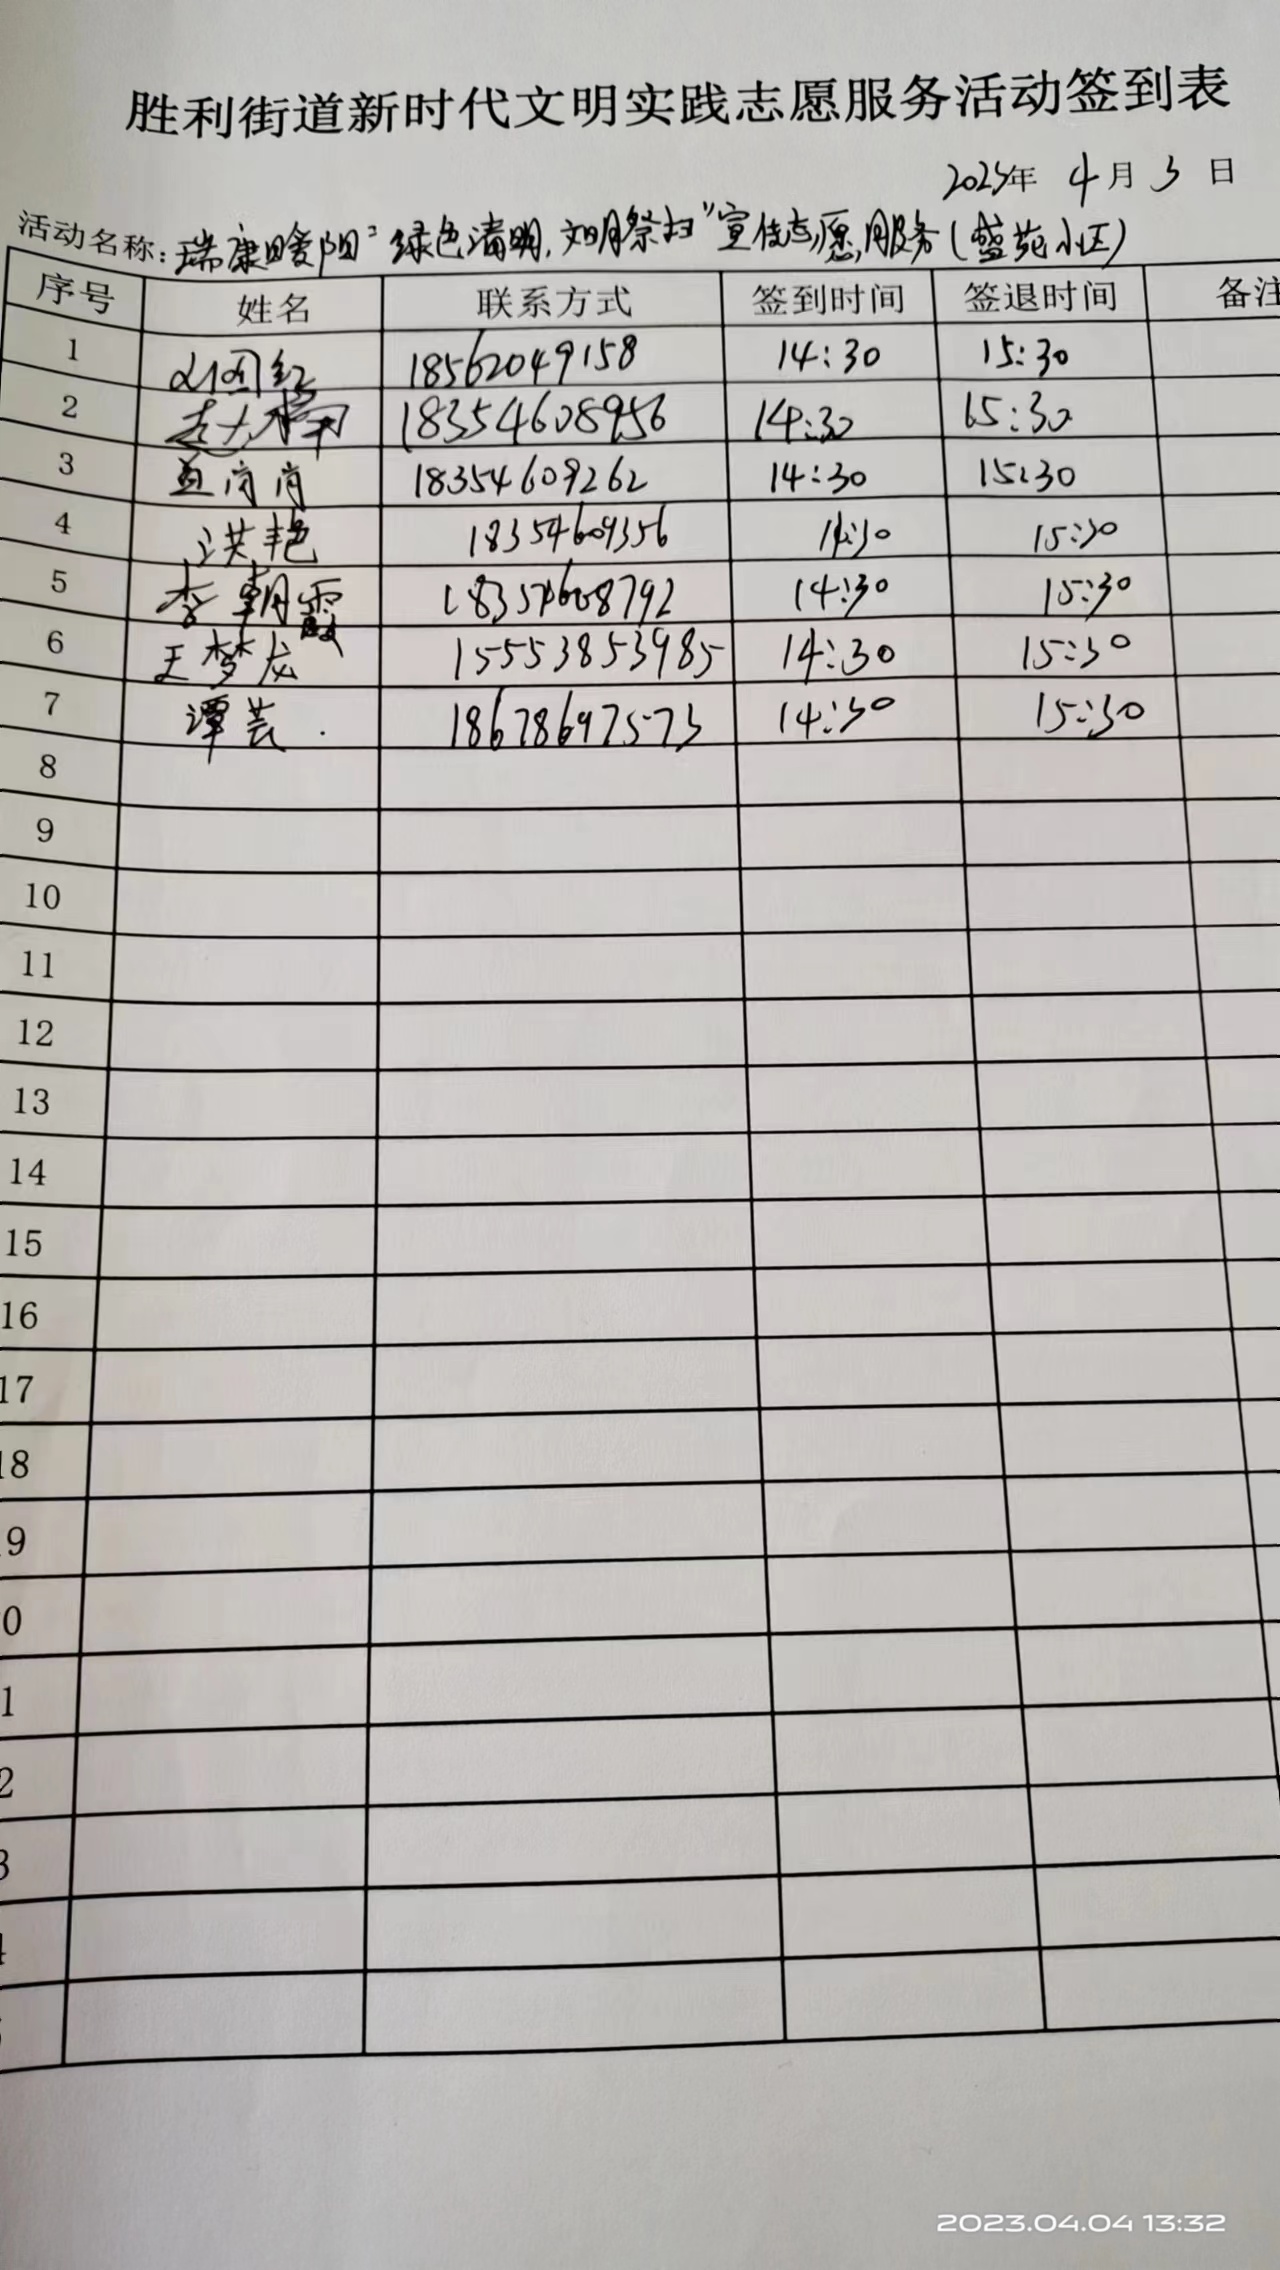 胜利街道新时代文明实践志愿服务活动签到表
2023年 4月 3 日
活动名称:瑞康暖阳"绿色清明,文明祭扫"宣传志愿服务(盛苑小区)
序号 姓名 联系方式 签到时间 签退时间 备注
1 18562049158 14:30 15:30
2 18354608956 14:30 15:30
3 18354609262 14:30 15:30
4 洪艳 18354609356 14:30 15:30
5 李朝霞 18354608792 14:30 15:30
6 王梦龙 15553853985 14:30 15:30
7 谭芸 18678697573 14:30 15:30
8
9
10
11
12
13
14
15
16
17
18
9
0
1
2
3
4
5
2023.04.04 13:32